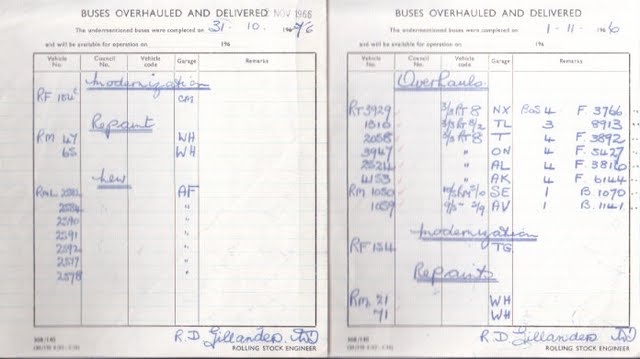 BUSES OVERHAULED AND DELIVERED
NOV 1966
The undermentioned buses were completed on 31. 10. 196
and will be available for operation on 196
Vehicle No. Council No. Vehicle code Garage Remarks
Modernization
RF 154 CM
Repaint
RM 47 WH
65 WH
New
AF
2584 "
2590 "
2591 "
2592 "
2577 "
2578 "
R.D. Gillanders
ROLLING STOCK ENGINEER
BUSES OVERHAULED AND DELIVERED
The undermentioned buses were completed on 1-11-1966
and will be available for operation on 196
Vehicle No. Council No. Vehicle code Garage Remarks
Overhauls
RT 3929 3/3 RT 8 NX BoS 4 F. 3766
1310 TL 3 8913
2058 3/3 RT 8 T 4 F. 3892
3947 " ON 4 F. 5427
2524 " AL 4
4153 " AK 4 F. 6144
RM 1050 SE 1 B. 1070
1059 AV 1 B. 1141
Modernization
RF TG
Repaints
RM 21 WH
71 WH
R.D. Gillanders
ROLLING STOCK ENGINEER